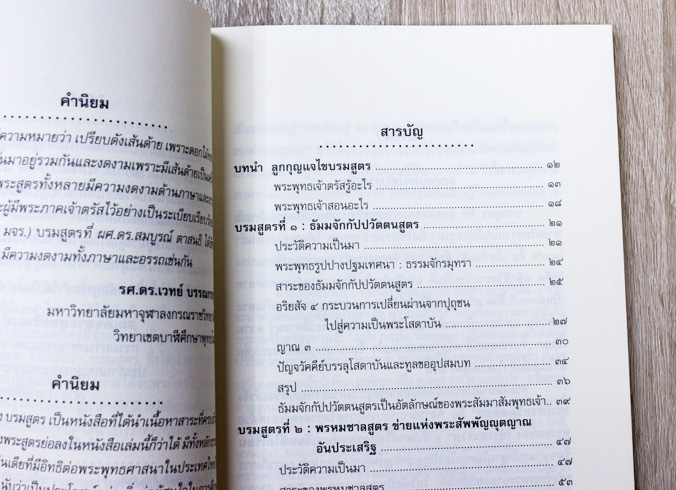 คำนิยม
ความหมายว่า เปรียบดังเส้นด้าย เพราะดอกไม้
มาอยู่รวมกันและงดงามเพราะมีเส้นด้ายเป็น
พระสูตรทั้งหลายมีความงดงามด้านภาษาและ
ผู้มีพระภาคเจ้าตรัสไว้อย่างเป็นระเบียบเรียบร้อย
มจร.) บรมสูตรที่ ผศ.ดร.สมบูรณ์ ตาสนธิ ได้
มีความงดงามทั้งภาษาและอรรถเช่นกัน
รศ.ดร.เวทย์
มหาวิทยาลัยมหาจุฬาลงกรณราชวิทยาลัย
วิทยาเขตบาฬีศึกษาพุทธ
คำนิยม
บรมสูตร เป็นหนังสือที่ได้นำเนื้อหาสาระที่
พระสูตรย่อลงในหนังสือเล่มนี้ก็ว่าได้ มีทั้งหลัก
เดียที่มีอิทธิต่อพระพุทธศาสนาในประเทศไทย
สารบัญ
บทนำ ลูกกุญแจไขบรมสูตร ๑๒
พระพุทธเจ้าตรัสรู้อะไร ๑๓
พระพุทธเจ้าสอนอะไร ๑๘
บรมสูตรที่ ๑ : ธัมมจักกัปปวัตตนสูตร ๒๑
ประวัติความเป็นมา ๒๑
พระพุทธรูปปางปฐมเทศนา : ธรรมจักรมุทรา ๒๔
สาระของธัมมจักกัปปวัตตนสูตร ๒๕
อริยสัจ ๔ กระบวนการเปลี่ยนผ่านจากปุถุชน
ไปสู่ความเป็นพระโสดาบัน ๒๗
ญาณ ๓ ๓๐
ปัญจวัคคีย์บรรลุโสดาบันและทูลขออุปสมบท ๓๔
สรุป ๓๖
ธัมมจักกัปปวัตตนสูตรเป็นอัตลักษณ์ของพระสัมมาสัมพุทธเจ้า.. ๓๙
บรมสูตรที่ ๒ : พรหมชาลสูตร ข่ายแห่งพระสัพพัญญุตญาณ
อันประเสริฐ ๔๗
ประวัติความเป็นมา ๔๗
สาระของพรหมชาลสูตร ๕๓